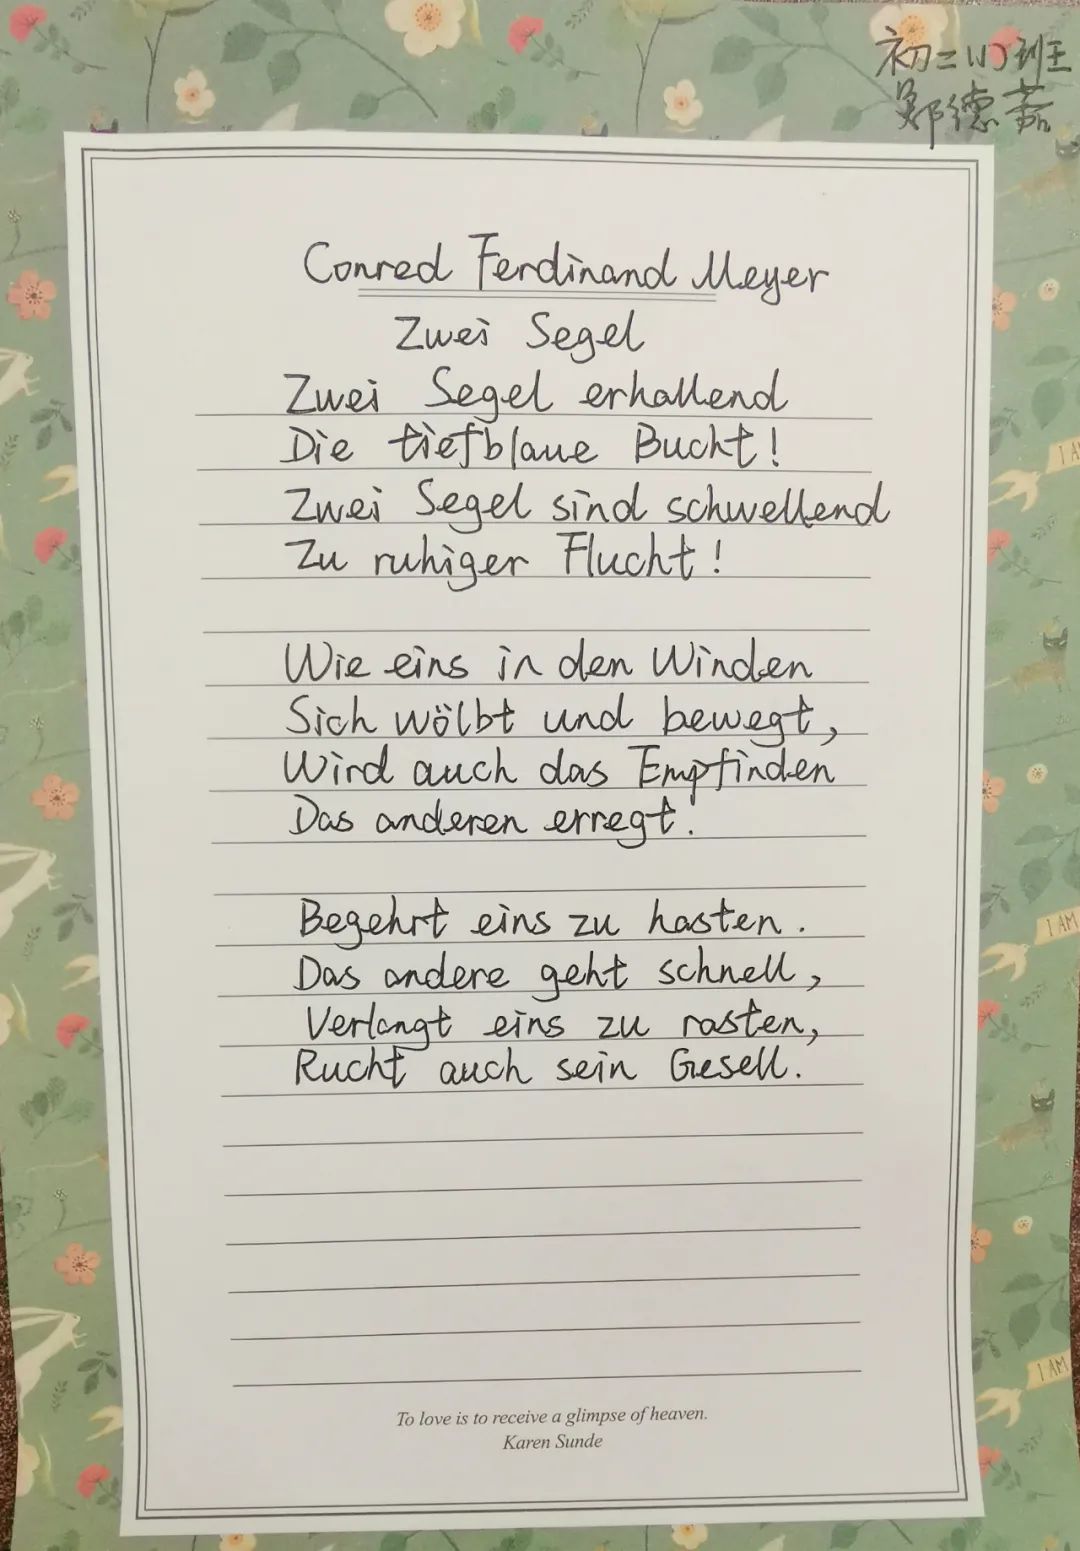 初二(1)班
郑德菩
Conred Ferdinand Meyer
Zwei Segel
Zwei Segel erhallend
Die tiefblaue Bucht!
Zwei Segel sind schwellend
Zu ruhiger Flucht!
Wie eins in den Winden
Sich wölbt und bewegt,
Wird auch das Empfinden
Das anderen erregt.
Begehrt eins zu hasten.
Das andere geht schnell,
Verlangt eins zu rasten,
Rucht auch sein Gesell.
To love is to receive a glimpse of heaven.
Karen Sunde
I AM
I AM
I AM